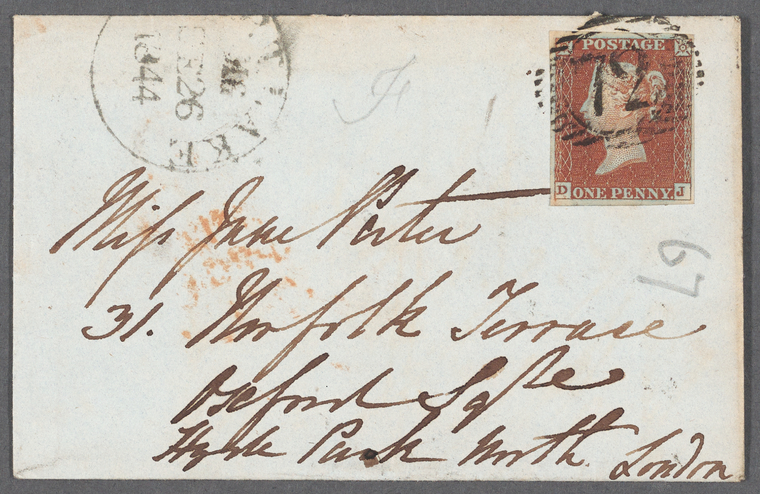 26
1844
POSTAGE
72
D ONE PENNY J
Miss Jane Porter
31. Norfolk Terrace
Oxford Sqre
Hyde Park North London
67